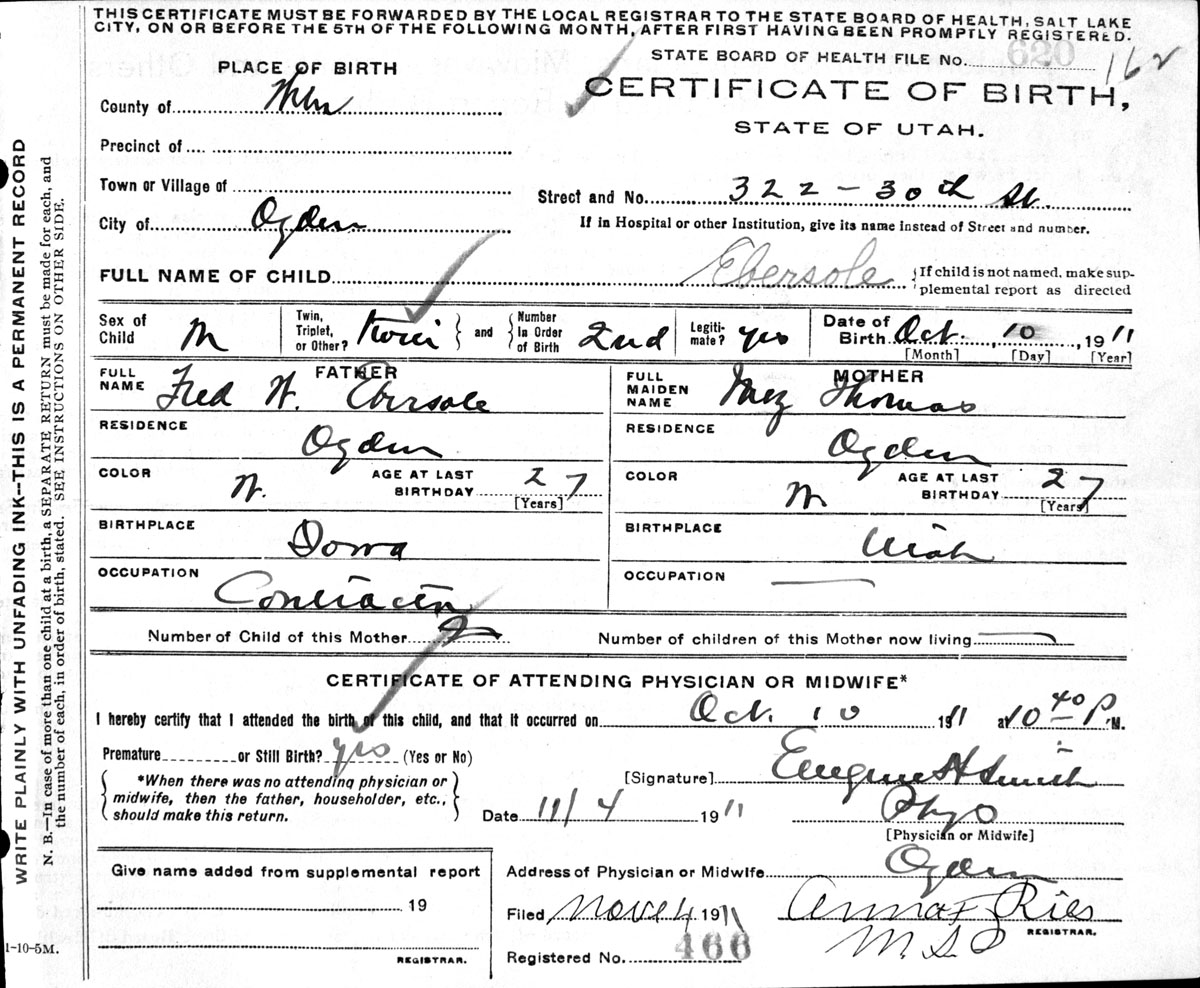 THIS CERTIFICATE MUST BE FORWARDED BY THE LOCAL REGISTRAR TO THE STATE BOARD OF HEALTH, SALT LAKE
CITY, ON OR BEFORE THE 5TH OF THE FOLLOWING MONTH, AFTER FIRST HAVING BEEN PROMPTLY REGISTERED.
PLACE OF BIRTH
STATE BOARD OF HEALTH FILE No. 620 162
County of
CERTIFICATE OF BIRTH,
STATE OF UTAH.
Precinct of
Town or Village of
Street and No. 322 - 30th St.
City of Ogden
If in Hospital or other Institution, give its name instead of Street and number.
FULL NAME OF CHILD Ebersole
{If child is not named, make sup-
plemental report as directed
Sex of Child M
Twin, Triplet, or Other? twin } and { Number In Order of Birth 2nd
Legiti-mate? yes
Date of Birth Oct. 10, 1911
[Month] [Day] [Year]
FATHER
FULL NAME Fred W. Ebersole
MOTHER
FULL MAIDEN NAME Inez Thomas
RESIDENCE Ogden
RESIDENCE Ogden
COLOR W. AGE AT LAST BIRTHDAY 27 [Years]
COLOR W. AGE AT LAST BIRTHDAY 27 [Years]
BIRTHPLACE Iowa
BIRTHPLACE Utah
OCCUPATION Contractor
OCCUPATION
Number of Child of this Mother 2
Number of children of this Mother now living
CERTIFICATE OF ATTENDING PHYSICIAN OR MIDWIFE*
I hereby certify that I attended the birth of this child, and that it occurred on Oct. 10 1911 at 10 40 P. M.
Premature or Still Birth? yes (Yes or No)
{*When there was no attending physician or
midwife, then the father, householder, etc.,
should make this return.}
[Signature] Eugene H Smith
Date 11/4 1911
Phys
[Physician or Midwife]
Give name added from supplemental report
19
REGISTRAR.
Address of Physician or Midwife Ogden
Filed Nov 4 1911 Anna F Ries
M.D.
REGISTRAR.
Registered No. 466
1-10-5M.
WRITE PLAINLY WITH UNFADING INK--THIS IS A PERMANENT RECORD
N. B.—In case of more than one child at a birth, a SEPARATE RETURN must be made for each, and
the number of each, in order of birth, stated. SEE INSTRUCTIONS ON OTHER SIDE.